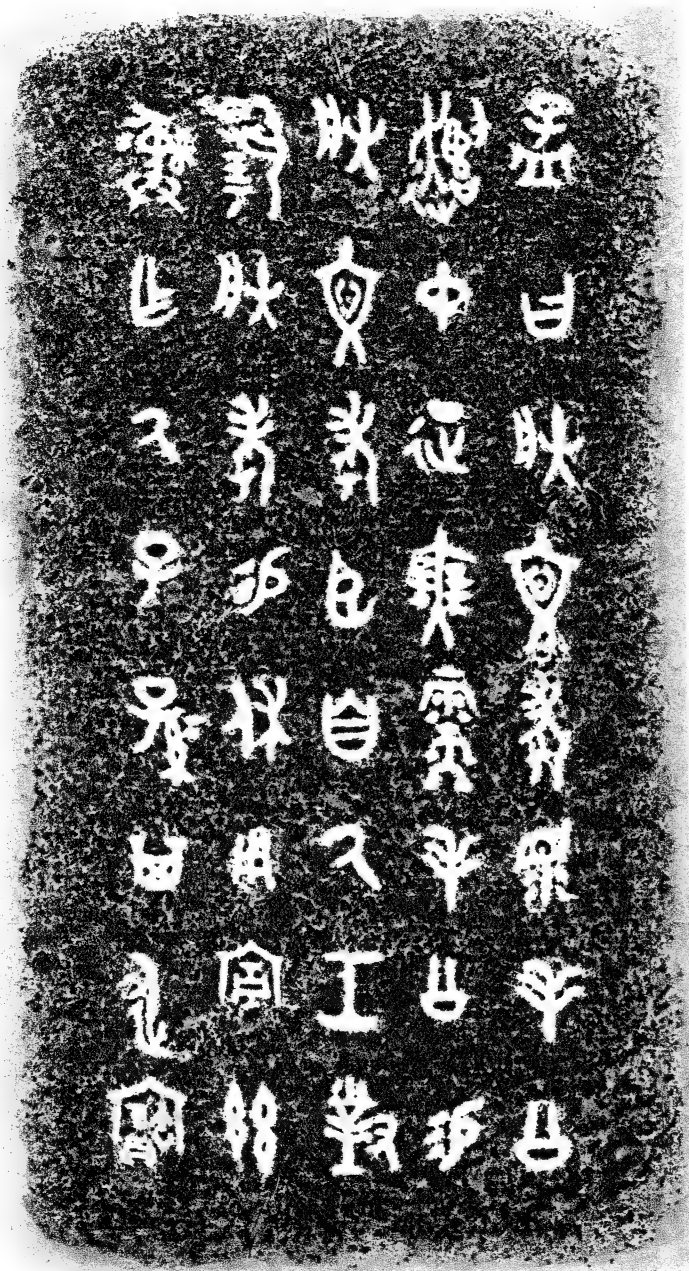 孟曰朕文考眔毛公
趞中征無需毛公易
朕文考臣自厥工對
揚朕考易休用宣茲
彝乍厥子孫其永寶